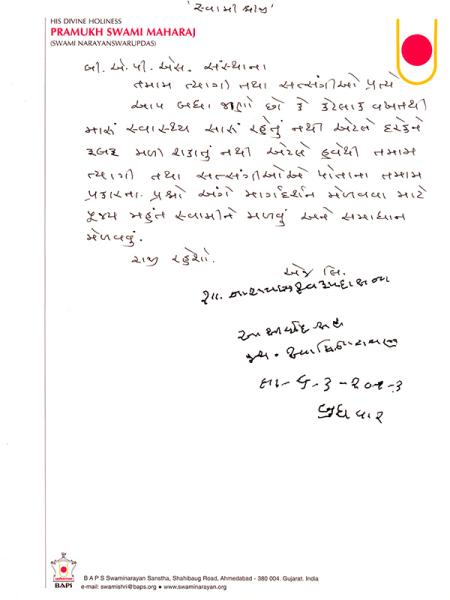 'સ્વામી શ્રીજી'
HIS DIVINE HOLINESS
PRAMUKH SWAMI MAHARAJ
(SWAMI NARAYANSWARUPDAS)
બી. એ. પી. એસ. સંસ્થાના
તમામ ત્યાગી તથા સત્સંગીઓ પ્રત્યે
આપ બધા જાણો છો કે કેટલાક વખતથી
મારું સ્વાસ્થ્ય સારું રહેતું નથી એટલે દરેકને
રૂબરૂ મળી શકાતું નથી એટલે હવેથી તમામ
ત્યાગી તથા સત્સંગીઓએ પોતાના તમામ
પ્રકારના પ્રશ્નો અંગે માર્ગદર્શન મેળવવા માટે
પૂજ્ય મહંત સ્વામીને મળવું અને સમાધાન
મેળવવું.
રાજી રહેશો.
એજ લિ.
શા. નારાયણસ્વરૂપદાસના
જય સ્વામિનારાયણ
તા- ૬-૩-૨૦૧૩
બુધવાર
BAPS
B A P S Swaminarayan Sanstha, Shahibaug Road, Ahmedabad - 380 004. Gujarat. India
e-mail: swamishri@baps.org • www.swaminarayan.org